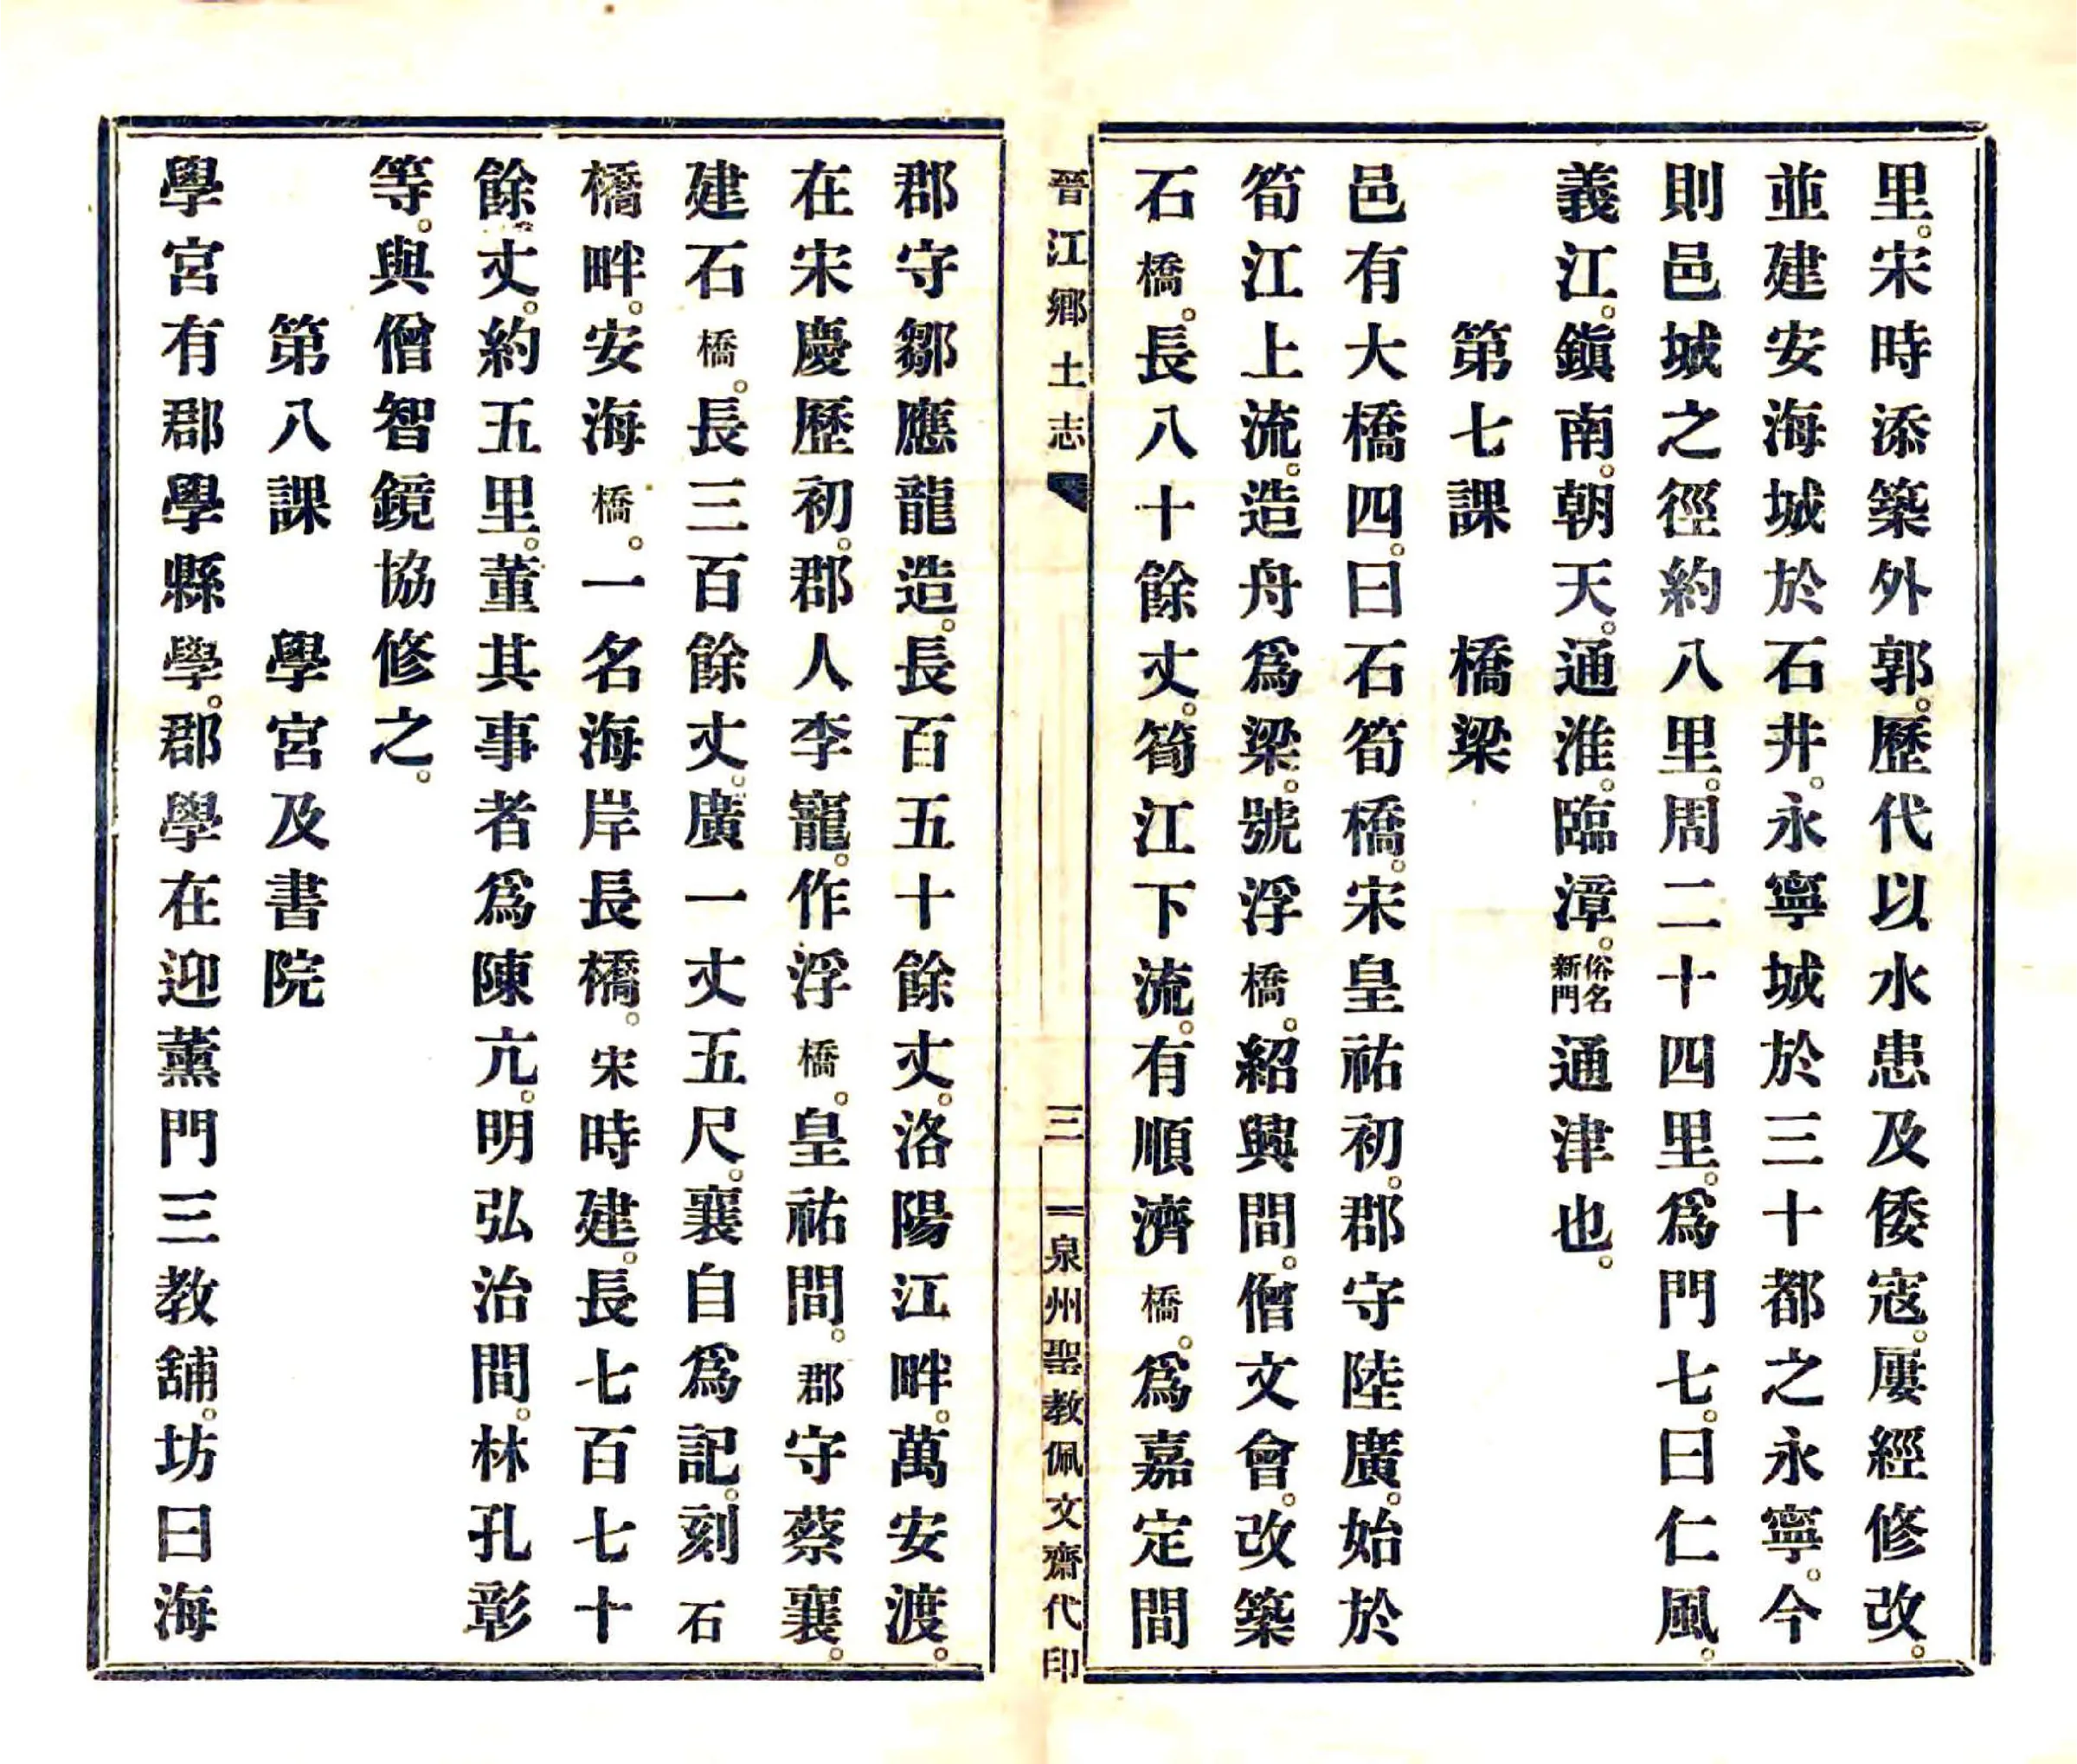 里。宋時添築外郭。歷代以水患及倭寇。屢經修改。
並建安海城於石井。永寧城於三十都之永寧。今
則邑城之徑約八里。周二十四里。爲門七。曰仁風。
義江。鎭南。朝天。通淮。臨漳。俗名新門通津也。
第七課　橋梁
邑有大橋四。曰石筍橋。宋皇祐初。郡守陸廣。始於
筍江上流。造舟爲梁。號浮橋。紹興間。僧文會。改築
石橋。長八十餘丈。筍江下流。有順濟橋。爲嘉定間
晉江鄉土志
三
泉州聖教佩文齋代印
郡守鄒應龍造。長百五十餘丈。洛陽江畔。萬安渡。
在宋慶歷初。郡人李寵。作浮橋。皇祐間。郡守蔡襄。
建石橋。長三百餘丈。廣一丈五尺。襄自爲記。刻石
橋畔。安海橋。一名海岸長橋。宋時建。長七百七十
餘丈。約五里。董其事者爲陳亢。明弘治間。林孔彰
等。與僧智鏡協修之。
第八課　學宮及書院
學宮有郡學縣學。郡學在迎薰門三教舖。坊曰海